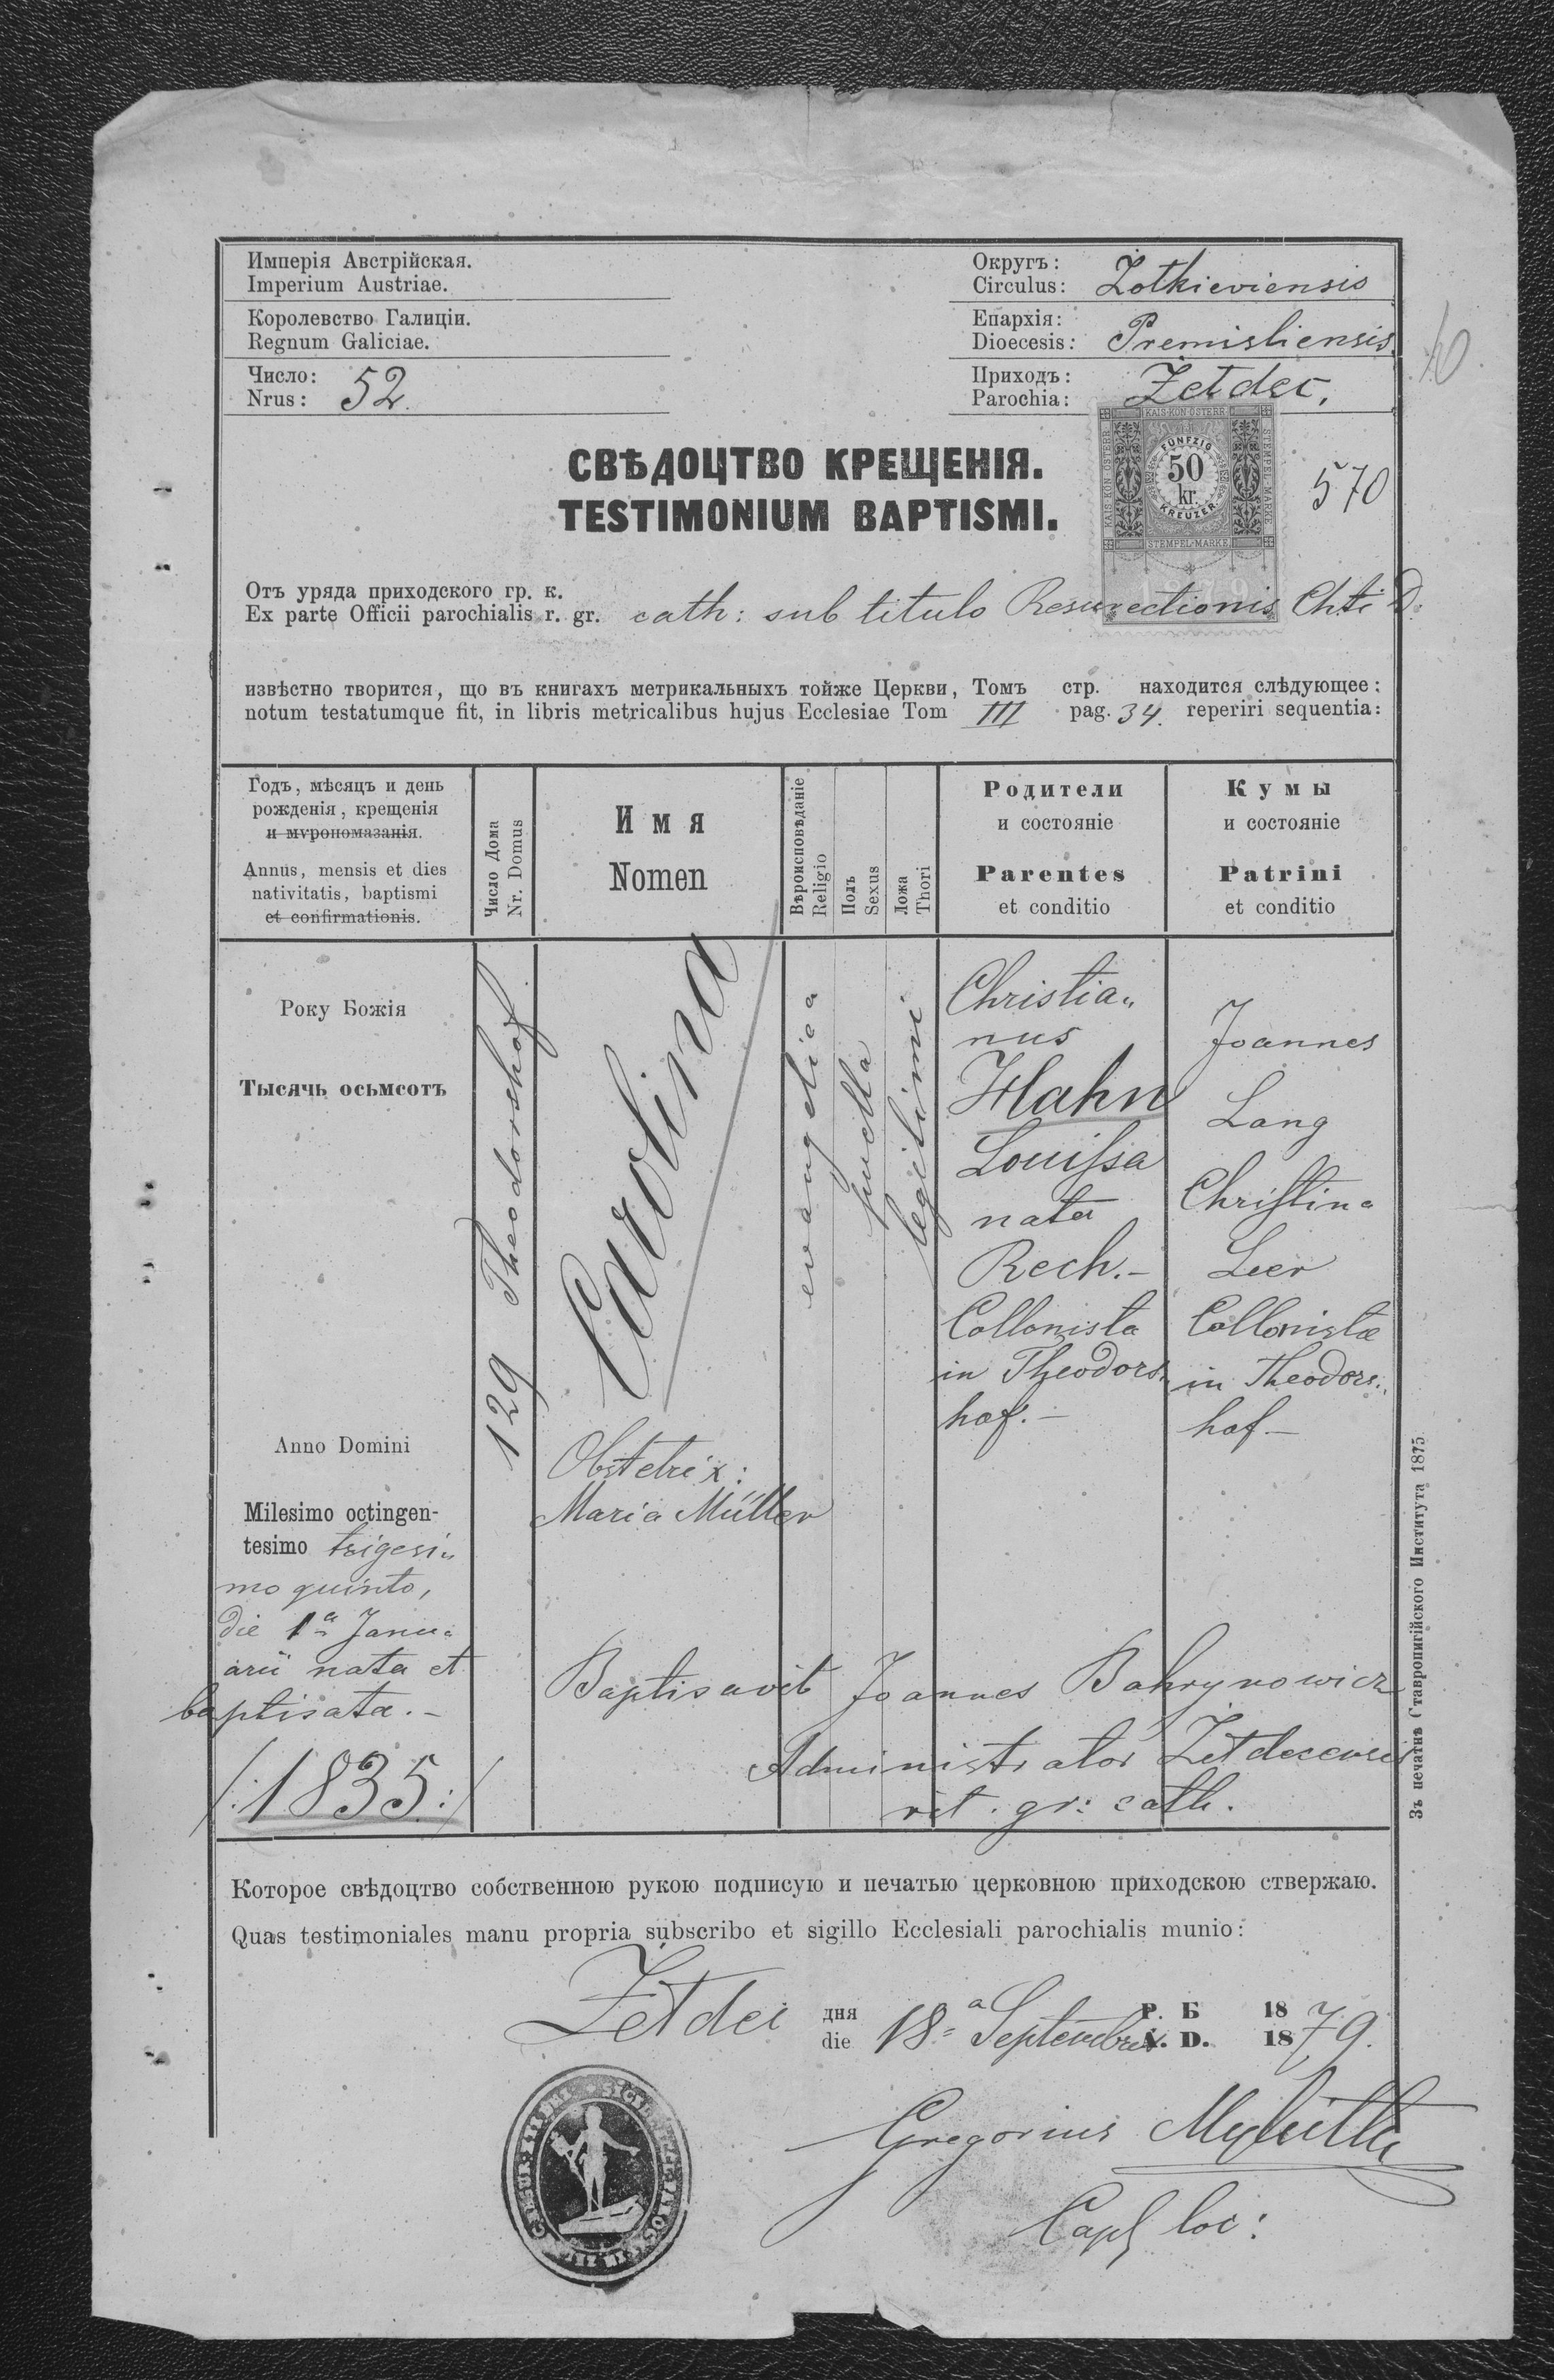 Имперія Австрійская.
Imperium Austriae.
Королевство Галиціи.
Regnum Galiciae.
Число:
Nrus: 52.
Округъ:
Circulus: Żołkieviensis
Епархія:
Dioecesis: Premisliensis
Приходъ:
Parochia: Żełdec.
10
СВѢДОЦТВО КРЕЩЕНІЯ.
TESTIMONIUM BAPTISMI.
KAIS·KÖN·ÖSTERR
STEMPEL-MARKE
FÜNFZIG
50
kr.
KREUZER
STEMPEL-MARKE
1879
570
Отъ уряда приходского гр. к.
Ex parte Officii parochialis r. gr. cath: sub titulo Resurectionis Chti D.
извѣстно творится, що въ книгахъ метрикальныхъ тойже Церкви, Томъ стр. находится слѣдующее:
notum testatumque fit, in libris metricalibus hujus Ecclesiae Tom III pag. 34. reperiri sequentia:
Годъ, мѣсяцъ и день
рожденія, крещенія
и мѵропомазанія.
Annus, mensis et dies
nativitatis, baptismi
et confirmationis.
Число Дома
Nr. Domus
Имя
Nomen
Вѣроисповѣданіе
Religio
Полъ
Sexus
Ложа
Thori
Родители
и состояніе
Parentes
et conditio
Кумы
и состояніе
Patrini
et conditio
Року Божія
Тысячь осьмсотъ
Anno Domini
Milesimo octingen-
tesimo trigesi„
mo quinto,
die 1ª Janu„
arii nata et
baptisata.–
/:1835:/
129 Theodorshof
Carolina
Obstetrix:
Maria Müller
evangelica
puella
legitimi
Christia„
nus
Hahn
Louissa
nata
Rech.–
Collonista
in Theodors„
hof.–
Joannes
Lang
Christina
Leer
Collonistæ
in Theodors„
hof–
Baptisavit Joannes Bahrynowicz
Administrator Żełdecensis
rit. gr: cath.
Которое свѣдоцтво собственною рукою подписую и печатью церковною приходскою стверxаю.
Quas testimoniales manu propria subscribo et sigillo Ecclesiali parochialis munio:
Żełdec дня Р. Б 18
die 18ª Septembris A. D. 1879.
Gregorius
Capl loc:
Зъ печатнѣ Ставропигійского Института 1875.